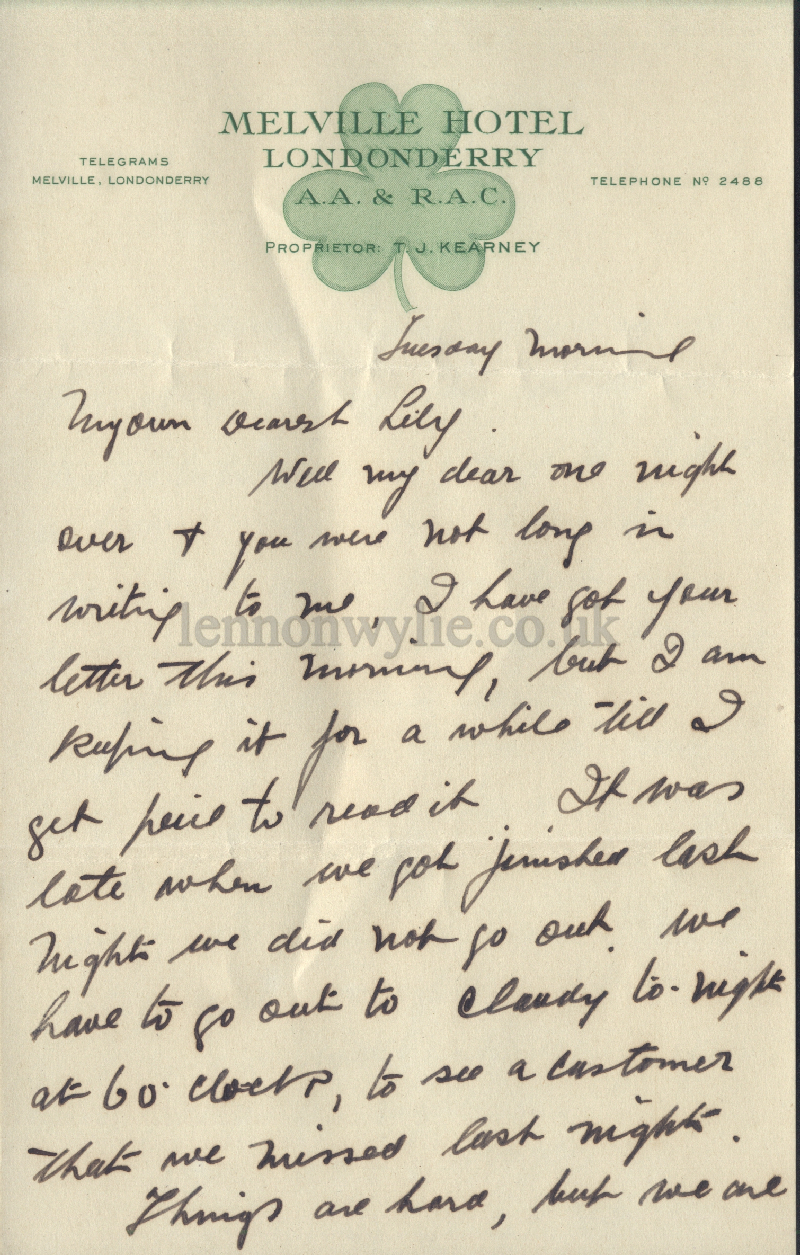 MELVILLE HOTEL
LONDONDERRY
A.A. & R.A.C.
PROPRIETOR: T. J. KEARNEY
TELEGRAMS
MELVILLE, LONDONDERRY
TELEPHONE Nº 2488
Tuesday Morning
My own Dearest Lily.
Well my dear one night
over + you were not long in
writing to me, I have got your
letter this morning, but I am
keeping it for a while till I
get peice to read it It was
late when we got finished last
night we did not go out. we
have to go out to Claudy to-night
at 6 o'clock, to see a customer
that we missed last night.
Things are hard, but we are
lennonwylie.co.uk